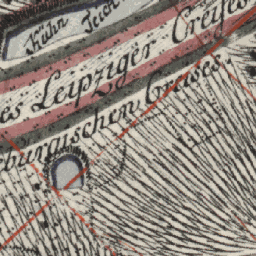 Kühn Teich
es Leipziger Creises
burgischen Creises.